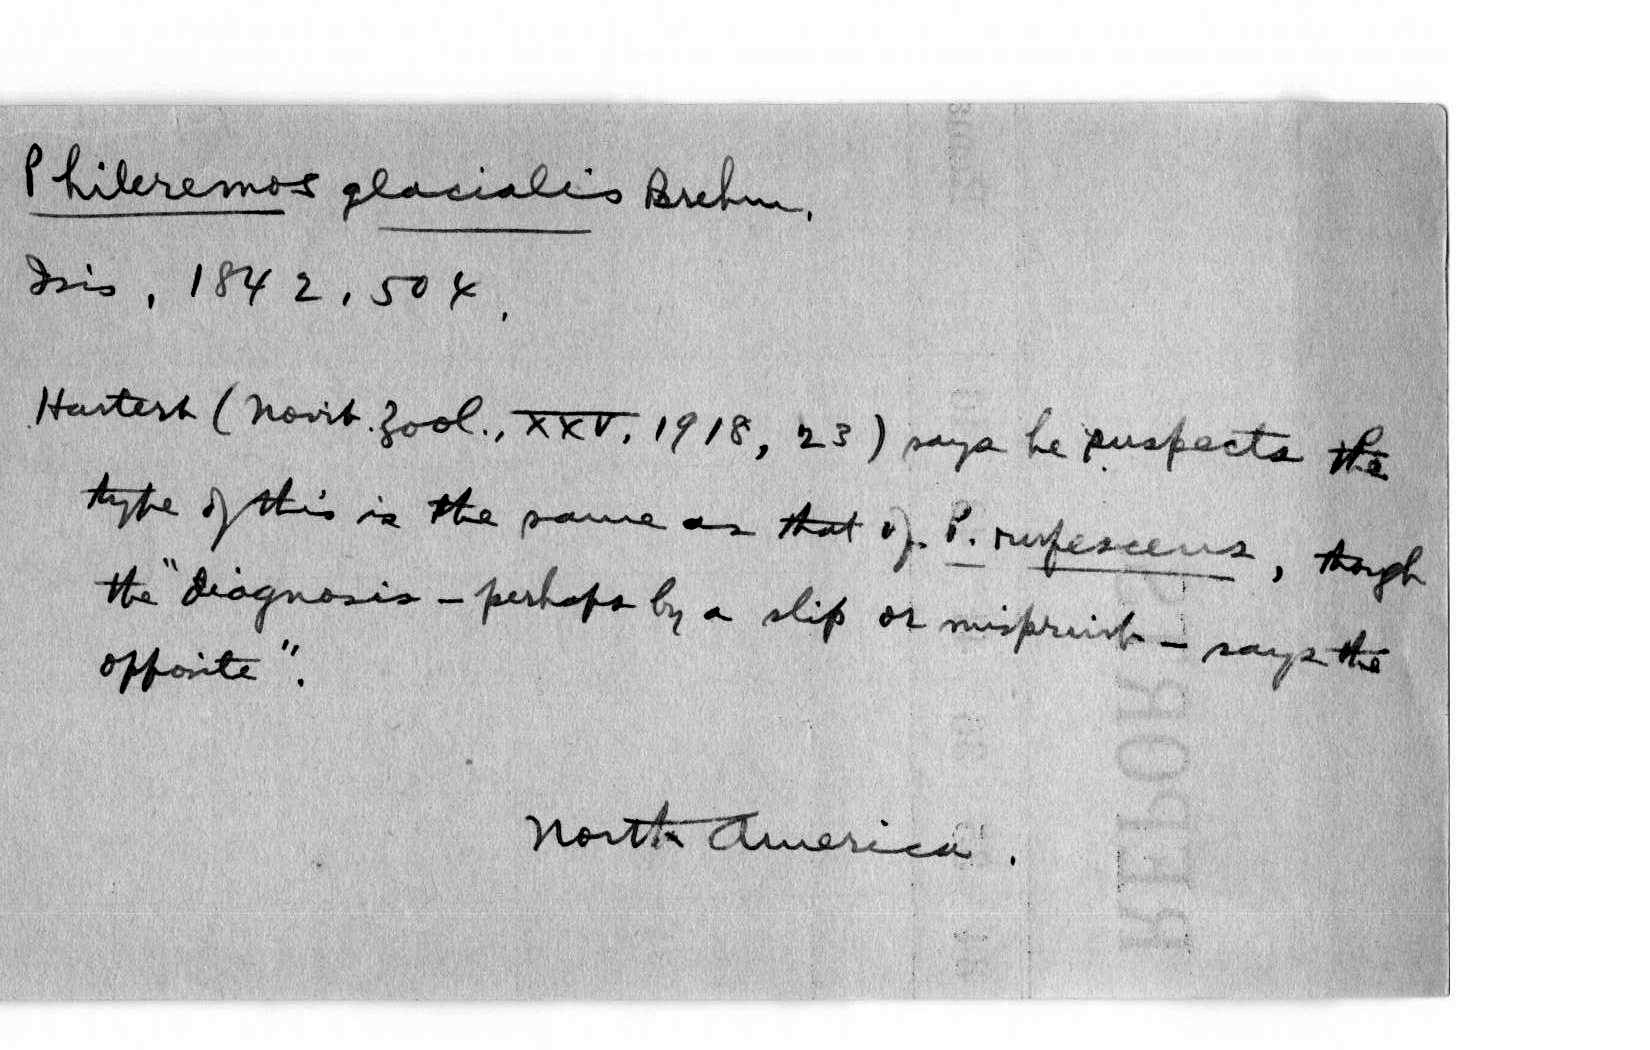 Phileremos glacialis Brehm.
Isis, 1842, 504.
Hartert (Novit. Zool., XXV, 1918, 23) says he suspects the
type of this is the same as that of P. rufescens, though
the "diagnosis - perhaps by a slip or misprint - says the
opposite".
North America.